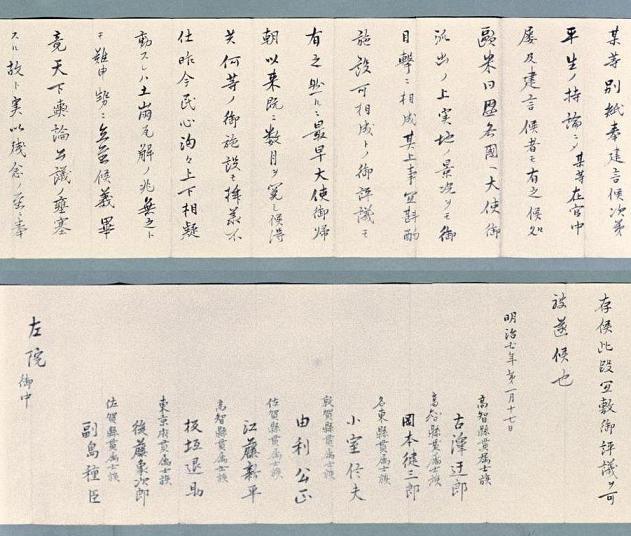 某等別紙奉建言候次第
平生ノ持論ニシテ某等在官中
屡及建言候者モ有之候処
欧米同盟各国ヘ大使御
派出ノ上実地ノ景況ヲモ御
目撃ニ相成其上事宜斟酌
施設可相成トノ御評議モ
有之然ルニ最早大使御帰
朝以来既ニ数月ヲ閲シ候得
共何等ノ御施設モ拝承不
仕昨今民心洶々上下相疑
動スレハ土崩瓦解ノ兆無之ト
モ難申勢ニ立至候義畢
竟天下輿論公議ノ壅塞
スル故ト実以残念ノ至ニ奉
存候此段宜敷御評議ヲ可
被遂候也
明治七年第一月十七日
高智縣貫属士族
古澤迂郎
高智縣貫属士族
岡本健三郎
名東縣貫属士族
小室信夫
敦賀縣貫属士族
由利公正
佐賀縣貫属士族
江藤新平
高智縣貫属士族
板垣退助
東京府貫属士族
後藤象次郎
佐賀縣貫属士族
副島種臣
左院御中